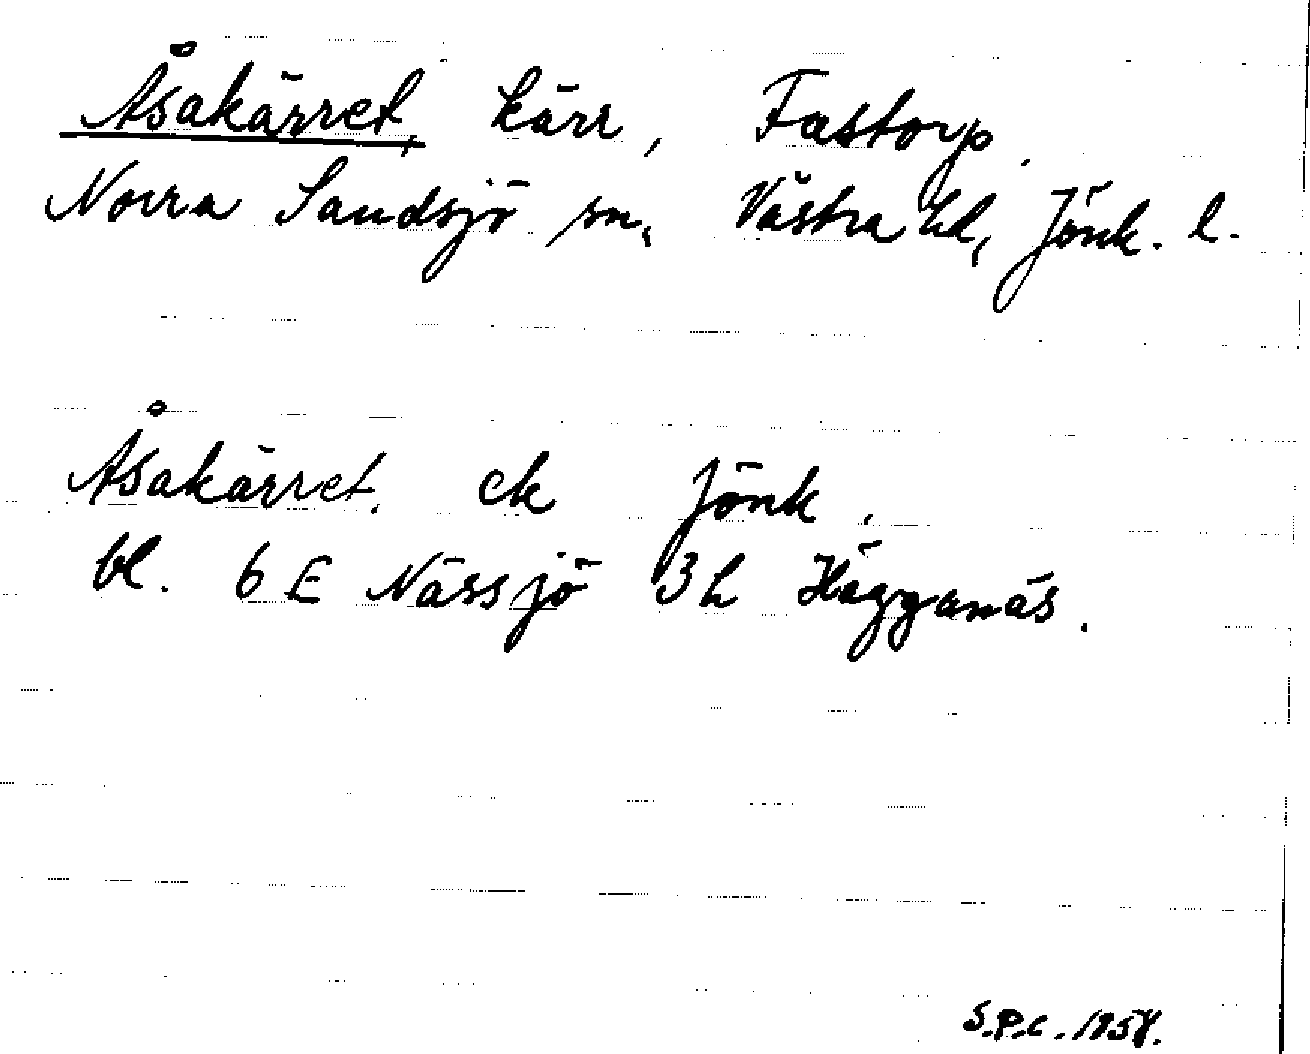 Åsakärret, kärr, Fastorp.
Norra Sandsjö sn, Västra hd, Jönk. l.
Åsakärret. ek Jönk.
bl. 6 E Nässjö 3 h Hägganäs.
S.P.C. 1958.